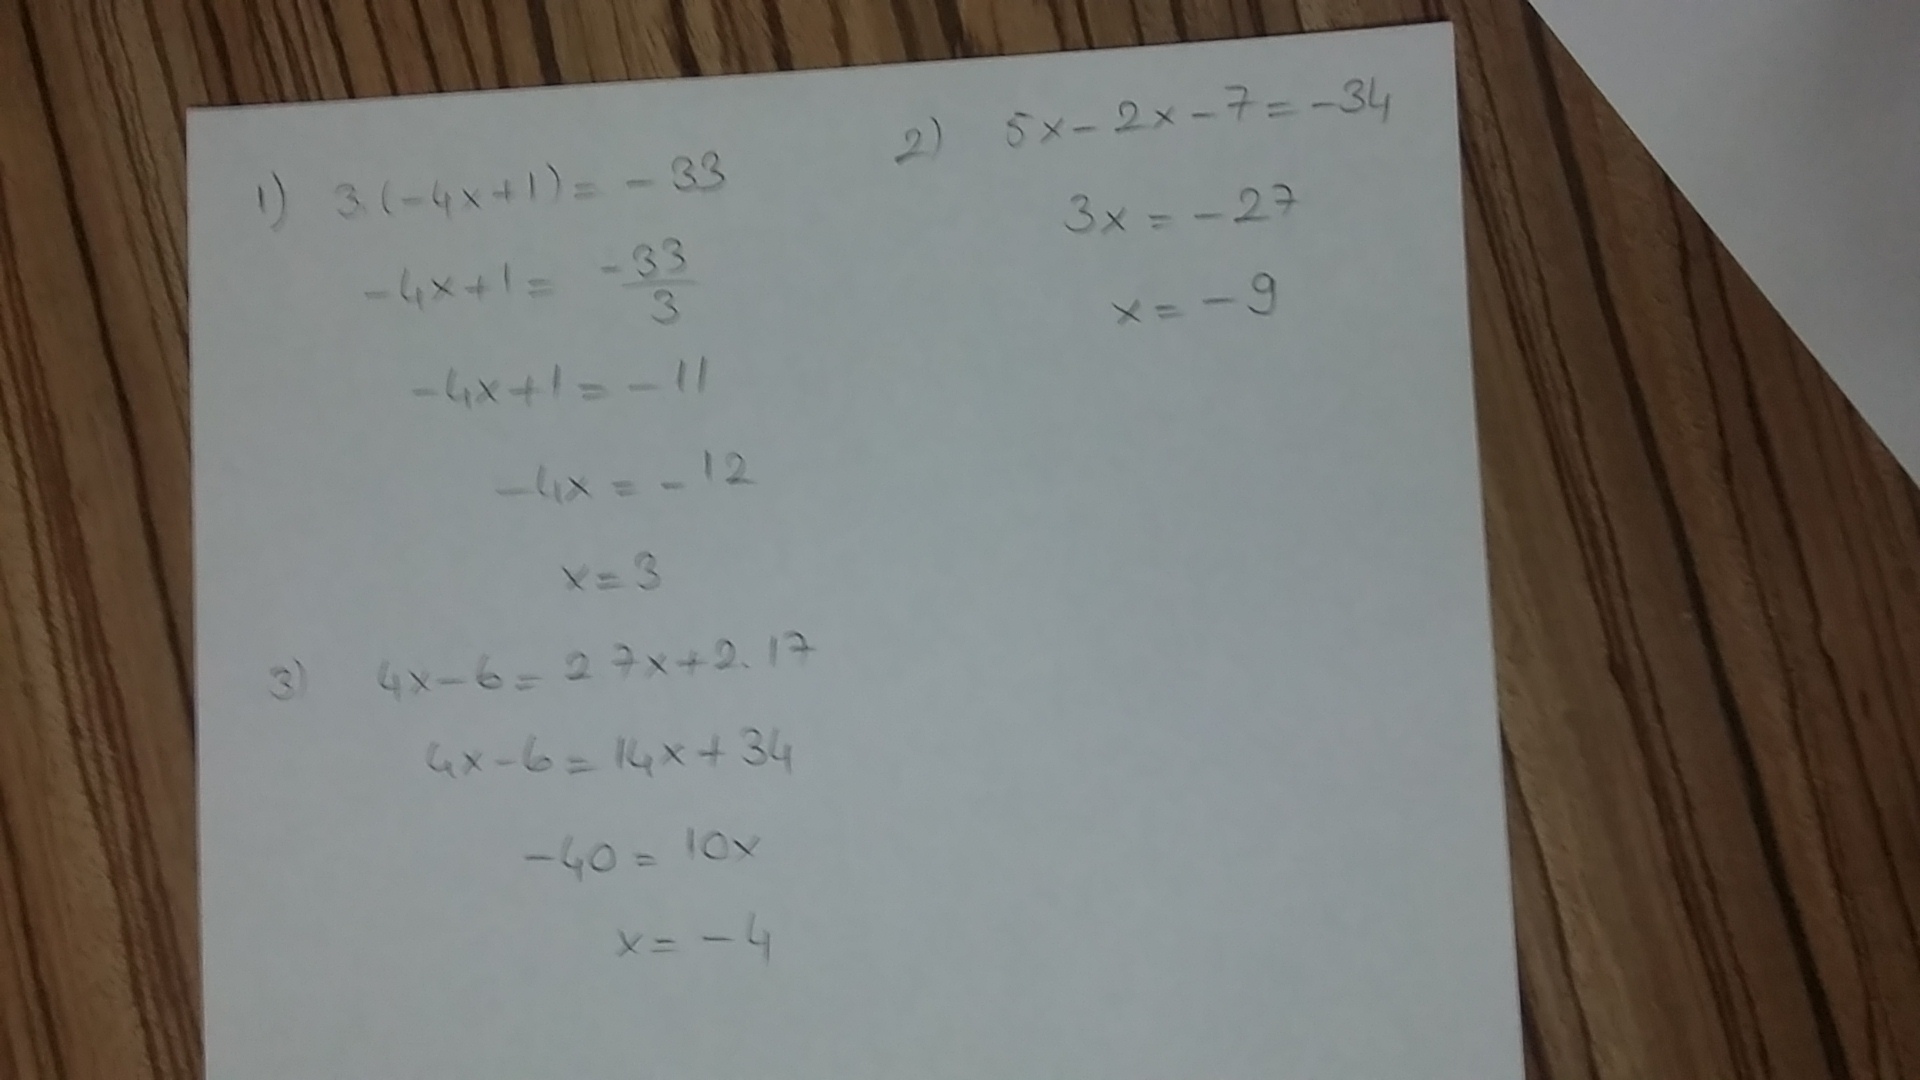 1) 3.(-4x+1) = -33
-4x+1 = -33/3
-4x+1 = -11
-4x = -12
x = 3
2) 5x-2x-7 = -34
3x = -27
x = -9
3) 4x-6 = 2 7x+2.17
4x-6 = 14x+34
-40 = 10x
x = -4